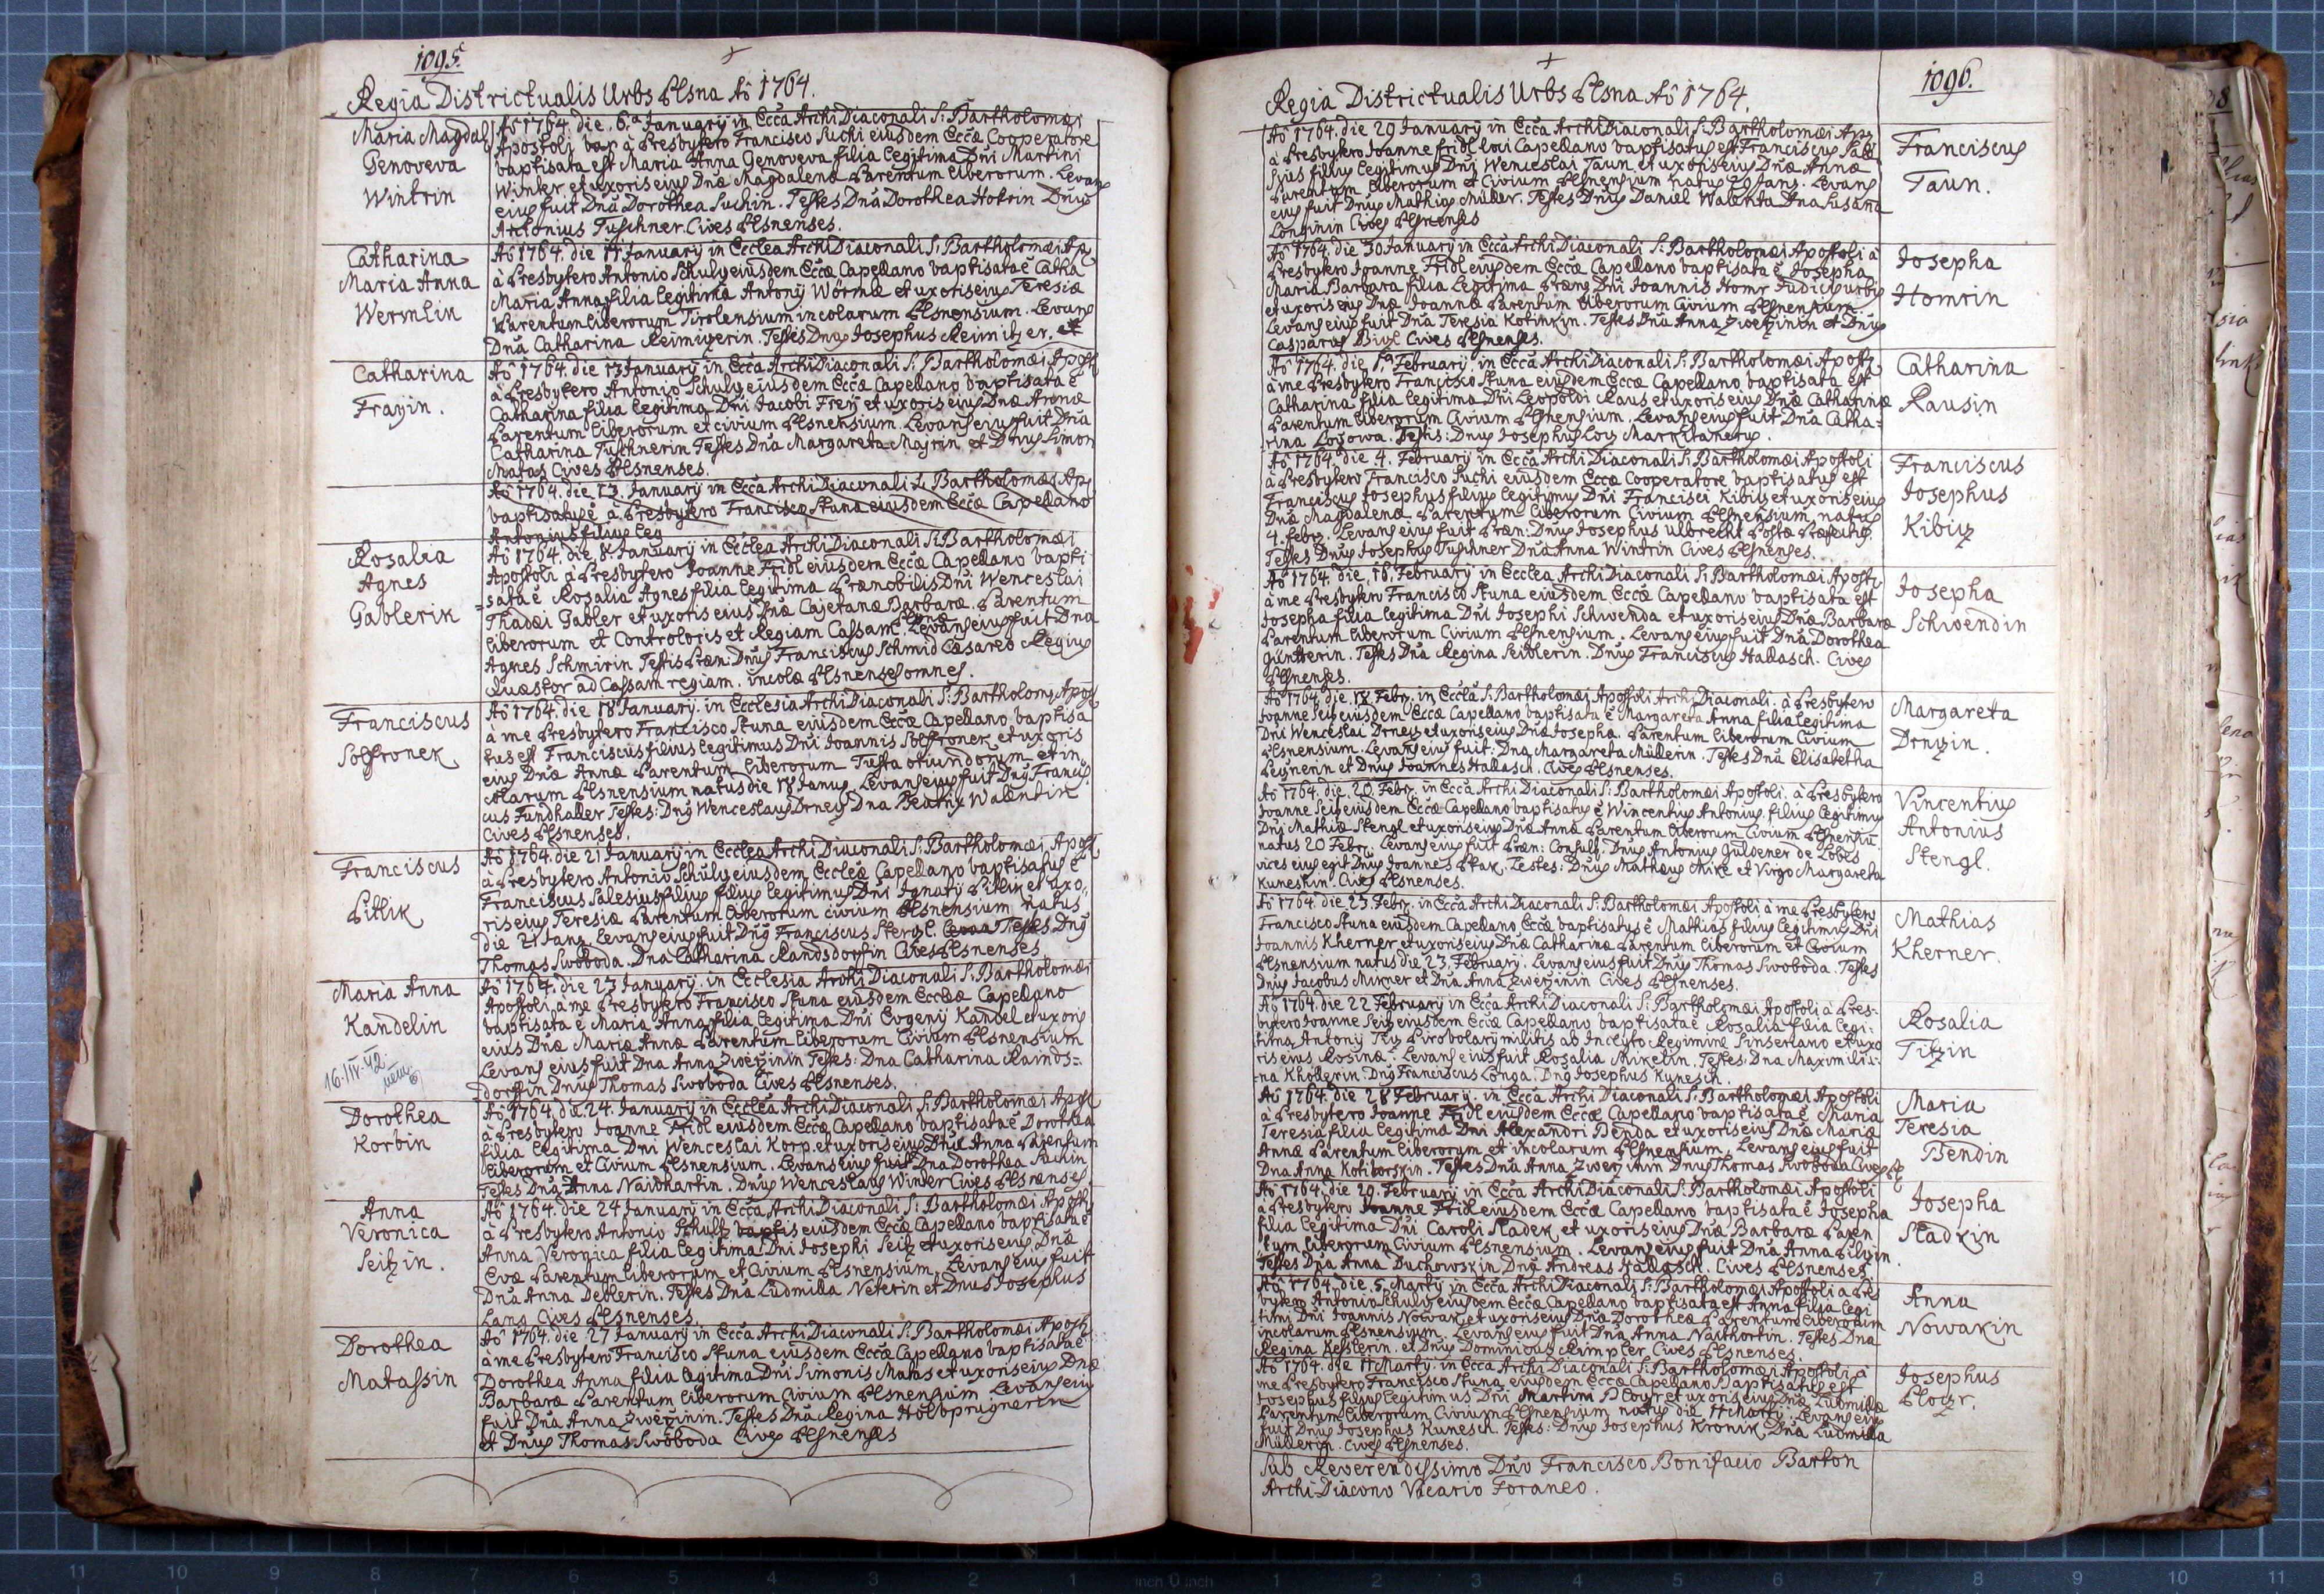 1095.
Regia Districtualis Urbs Plsna Aô 1764.
Maria Magdal
Genoveva
Wintrin
Aô 1764. die. 6.ª January in Eccâ ArchiDiaconali S: Bartholomæi
Apostoli bap à Presbytero Francisco Suchi eiusdem Eccæ Cooperatore
baptisata est Maria Anna Genoveva filia legitima Dñi Martini
Winter et uxoris eius Dnæ Magdalenæ Parentum liberorum. Levans
eius fuit Dnâ Dorothea Suchin. Testes Dnâ Dorothea Hotrin Dnus
Antonius Tuschner. Cives Plsnenses.
Catharina
Maria Anna
Wermlin
Aô 1764. die 11 January in Ecclea ArchiDiaconali S: Bartholomæi Ap
à Presbytero Antonio Schulz eiusdem Eccæ Capellano baptisata ê Catha
Maria Anna filia legitima Antonij Wörmæ et uxoris eius Teresiæ
Parentum liberorum Tirolensium incolarum Plsnensium. Levans
Dnâ Catharina Reimizerin. Testis Dnus Josephus Reimitzer. et
Catharina
Frayin.
Aô 1764. die 13 January in Ecca ArchiDiaconali S: Bartholomæi Apost
à Presbytero Antonio Schulz eiusdem Eccæ Capellano baptisata ê
Catharina filia legitima Dni Jacobi Freÿ et uxoris eius Dnæ Annæ
Parentum liberorum et civium Plsnensium. Levans eius fuit Dnâ
Catharina Tuschnerin Testes Dnâ Margareta Majrin et Dnus Simon
Matas Cives Plsnenses.
Aô 1764. die 13. January in Ecca ArchiDiaconali S: Bartholomæi Ap
baptisatus ê à Presbytero Francisco Stuna eiusdem Eccæ Capellano
Antonius filius leg
Rosalia
Agnes
Gablerin
Aô 1764. die 8 January in Ecclea ArchiDiaconali S: Bartholomæi
Apostoli à Presbytero Joanne Fridl eiusdem Eccæ Capellano bapti
sata ê Rosalia Agnes filia legitima Prænobilis Dni Wenceslai
Thadæi Gabler et uxoris eius Dnæ Cajetanæ Barbaræ. Parentum
liberorum et Controloris et Regiam Cassam Plsnæ. Levans eius fuit Dna
Agnes Schmirin Testis Præn: Dnus Franciscus Schmid Cæsareo Regius
Quæstor ad Cassam regiam. incolæ Plsnenses omnes.
Franciscus
Soffronek
Aô 1764. die 18 January. in Ecclesia ArchiDiaconali S: Bartholom: Apost
à me Presbytero Francisco Stuna eiusdem Eccæ Capellano baptisa
tus est Franciscus filius legitimus Dñi Joannis Soffronek et uxoris
eius Dnæ Annæ Parentum liberorum Tusta oriundorum et in
colarum Plsnensium natus die 18 Janus. Levans eius fuit Dnus Francis
cus Fundhaller Testes: Dnus Wenceslaus Drneys Dna Beatrix Walentin
Cives Plsnenses.
Franciscus
Pittik
Aô 1764. die 21 January in Ecclea ArchiDiaconali S: Bartholomæi Apost
à Presbytero Antonio Schulz eiusdem Eccleæ Capellano baptisatus ê
Franciscus Salesius filius filius legitimus Dni Ignatij Pittik et uxo
ris eius Teresiæ Parentum liberorum civium Plsnensium natus
die 21 Jans. Levans eius fuit Dnus Franciscus Stengl. Testes Dnus
Thomas Swoboda. Dna Catharina Randsdorfin Cives Plsnenses
Maria Anna
Kandelin
16. IV. 42
Aô 1764. die 23 January. in Ecclesia ArchiDiaconali S: Bartholomæi
Apostoli à me Presbytero Francisco Stuna eiusdem Eccleæ Capellano
baptisata ê Maria Anna filia legitima Dni Evgenij Kandel et uxoris
eius Dnæ Mariæ Annæ Parentum liberorum Civium Plsnensium
Levans eius fuit Dna Anna Zwězinin Testes: Dna Catharina Rainds=
dorffin Dnus Thomas Swoboda Cives Plsnenses.
Dorothea
Korbin
Aô 1764. die. 24. January in Ecclea ArchiDiaconali S: Bartholomæi Apost
à Presbytero Joanne Fridl eiusdem Eccæ Capellano baptisata ê Dorothea
filia legitima Dni Wenceslai Korp. et uxoris eius Dnæ Anna Parentum
liberorum et Civium Plsnensium. Levans eius fuit Dna Dorothea Suchin
Testes Dnâ Anna Naidhartin. Dnus Wenceslaus Winter Cives Plsnenses
Anna
Veronica
Seitzin.
Aô 1764. die 24 January in Ecca ArchiDiaconali S: Bartholomæi Aposth
à Presbytero Antonio Schultz baptis eiusdem Eccæ Capellano baptisata ê
Anna Veronica filia legitima Dni Josephi Seitz et uxoris eius Dnæ
Evæ Parentum liberorum et Civium Plsnensium. Levans eius fuit
Dnâ Anna Deblerin. Testes Dnâ Ludmilla Neterin et Dnus Josephus
Lang Cives Plsnenses
Dorothea
Matassin
Aô 1764. die 27 January in Ecca ArchiDiaconali S: Bartholomæi Aposth
à me Presbytero Francisco Stuna eiusdem Eccæ Capellano baptisata ê
Dorothea Anna filia legitima Dñi Simonis Matas et uxoris eius Dnæ
Barbaræ Parentum liberorum Civium Plsnensium Levans eius
fuit Dnâ Anna Zwězinin. Testes Dnâ Regina Holbprugnerin
et Dnus Thomas Swoboda Cives Plsnenses
1096.
Regia Districtualis Urbs Plsna Aô 1764.
Aô 1764. die 29 January in Ecca ArchiDiaconali S: Bartholomæi Ap
à Presbytero Joanne Fridl loci Capellano baptisatus est Franciscus Sale
sius filius legitimus Dñi Wenceslai Taun et uxoris eius Dnæ Annæ
Parentum liberorum et Civium Plsnensium natus 29 Jans. Levans
eius fuit Dnus Mathius Müller. Testes Dnus Daniel Walenta Dna Susana
Longinin Cives Plsnenses
Franciscus
Taun.
Aô 1764. die 30 January in Ecca ArchiDiaconali S: Bartholomæi Apostoli à
Presbytero Joanne Fridl eiusdem Eccæ Capellano baptisata ê Josepha
Maria Barbara filia Legitima Præn: Dni Joannis Homr Judicis urbis
et uxoris eius Dnæ Joannæ Parentum liberorum Civium Plsnensium
Levans eius fuit Dna Teresia Kotinkin. Testes Dna Anna Zwezinin et Dnus
Casparus Bisl Cives Plsnenses.
Josepha
Homrin
Aô 1764. die 1.ª February. in Ecca ArchiDiaconali S: Bartholomæi Apost
à me Presbytero Francisco Stuna eiusdem Eccæ Capellano baptisata est
Catharina filia legitima Dñi Leopoldi Raus et uxoris eius Dnæ Catharinæ
Parentum liberorum Civium Plsnensium. Levans eius fuit Dnâ Catha=
rina Loyowa. Testis: Dnus Josephus Loy Markitanerus.
Catharina
Rausin
Aô 1764. die 4. February in Ecca ArchiDiaconali S: Bartholomæi Apostoli
à Presbytero Francisco Suchi eiusdem Eccæ Cooperatore baptisatus est
Franciscus Josephus filius legitimus Dni Francisci Kibiz et uxoris eius
Dnæ Magdalenæ Parentum liberorum Civium Plsnensium natus
4. febr. Levans eius fuit Præn: Dnus Josephus Ulbrecht Postæ Præfectus.
Testes Dnus Josephus Tuschner Dnâ Anna Wintrin Cives Plsnenses.
Franciscus
Josephus
Kibiz
Aô 1764. die. 16. February in Ecclea ArchiDiaconali S: Bartholomæi Aposti
à me Presbytero Francisco Stuna eiusdem Eccæ Capellano baptisata est
Josepha filia legitima Dñi Josephi Schwenda et uxoris eius Dnæ Barbaræ
Parentum liberorum Civium Plsnensium. Levans eius fuit Dnâ Dorothea
Güntterin. Testes Dnâ Regina Seidlerin. Dnus Franciscus Hallasch. Cives
Plsnenses.
Josepha
Schwendin
Aô 1764. die 18. Febr. in Eccla S: Bartholomæi Apostoli ArchiDiaconali. à Presbytero
Joanne Seiz eiusdem Eccæ Capellano baptisata ê Margareta Anna filia legitima
Dñi Wenceslai Drneis et uxoris eius Dnæ Josepha. Parentum liberorum Civium
Plsnensium. Levans eius fuit: Dna Margareta Müllerin. Testes Dnâ Elisabetha
Leisnerin et Dnus Joannes Hallasch. Cives Plsnenses.
Margareta
Drnzin.
Aô 1764. die. 20. Febr. in Ecca ArchiDiaconali S: Bartholomæi Apostoli. à Presbytero
Joanne Seiz eiusdem Eccæ Capellano baptisatus ê Wincentius Antonius. filius legitimus
Dni Mathiæ Stengl et uxoris eius Dnæ Annæ Parentum liberorum Civium Plsnensiu.
natus 20 Febr. Levans eius fuit Præn: Consuls. Dnus Antonius Guldener de Lobes
vices eius egit Dnus Joannes Ptak. Testes: Dnus Mathæus Mike et Virgo Margareta
Kuneshin. Cives Plsnenses.
Vincentius
Antonius
Stengl.
Aô 1764. die. 23. Febr. in Ecca ArchiDiaconali S: Bartholomæi Apostoli à me Presbytero
Francisco Stuna eiusdem Capellano Eccæ baptisatus ê Mathias filius legitimus Dni
Joannis Kherner et uxoris eius Dnæ Catharinæ Parentum liberorum et Civium
Plsnensium natus die 23. February. Levans eius fuit Dnus Thomas Swoboda. Testes
Dnus Jacobus Mixner et Dna Anna Zwezinin Cives Plsnenses.
Mathias
Kherner.
Aô 1764. die 22 February in Ecca ArchiDiaconali S: Bartholomæi Apostoli à Pres-
bytero Joanne Seiz eiusdem Eccæ Capellano baptisata ê Rosalia filia legi:
tima Antonij Tiz Pirobolarij militis ab Inclyto Regimine Sinserlano et uxo
ris eius Rosinæ. Levans eius fuit Rosalia Miketin. Testes: Dna Maximilia-
na Khollerin Dnus Franciscus Longa. Dnus Josephus Kunesch.
Rosalia
Titzin
Aô 1764. die 28 February. in Ecca ArchiDiaconali S: Bartholomæi Apostoli
à Presbytero Joanne Fridl eiusdem Eccæ Capellano baptisata ê Maria
Teresia filia legitima Dni Alexandri Benda et uxoris eius Dnæ Mariæ
Annæ Parentum liberorum et incolarum Plsnensium. Levans eius fuit
Dna Anna Kotiborskin. Testes Dna Anna Zwezinin Dnus Thomas Swoboda Cives
Maria
Teresia
Bendin
Aô 1764. die 29. February in Ecca ArchiDiaconali S: Bartholomæi Apostoli
à Presbytero Joanne Fridl eiusdem Eccæ Capellano baptisata ê Josepha
filia legitima Dni Caroli Sladek et uxoris eius Dnæ Barbaræ Paren
tum liberorum Civium Plsnensium. Levans eius fuit Dna Anna Pilyin
Testes Dna Anna Duchowskin Dnus Andreas Hallasch. Cives Plsnenses
Josepha
Sladkin
Aô 1764. die. 5. Marty in Ecca ArchiDiaconali S: Bartholomæi Apostoli à Pres
bytero Antonio Schulz eiusdem Eccæ Capellano baptisata est Anna filia legi
tima Dni Joannis Nowak et uxoris eius Dnæ Dorotheæ Parentum liberorum
incolarum Plsnensium. Levans eius fuit Dna Anna Naithortin. Testes Dna
Regina Kesslerin. et Dnus Dominicus Rimpler. Cives Plsnenses.
Anna
Nowakin
Aô 1764. die 11 Marty. in Ecca ArchiDiaconali S: Bartholomæi Apostoli à
me Presbytero Francisco Stuna eiusdem Eccæ Capellano Baptisatus est
Josephus filius legitimus Dni Martini Plozr et uxoris eius Dnæ Ludmilæ
Parentum liberorum Civium Plsnensium natus die 11 Marty. Levans eius
fuit Dnus Josephus Kunesch. Testes: Dnus Josephus Kronik. Dna Ludmilla
Müllerin. Cives Plsnenses.
Josephus
Plozr.
Sub Reverendissimo Dno Francisco Bonifacio Barton
Archi-Diacono Vicario Foraneo.